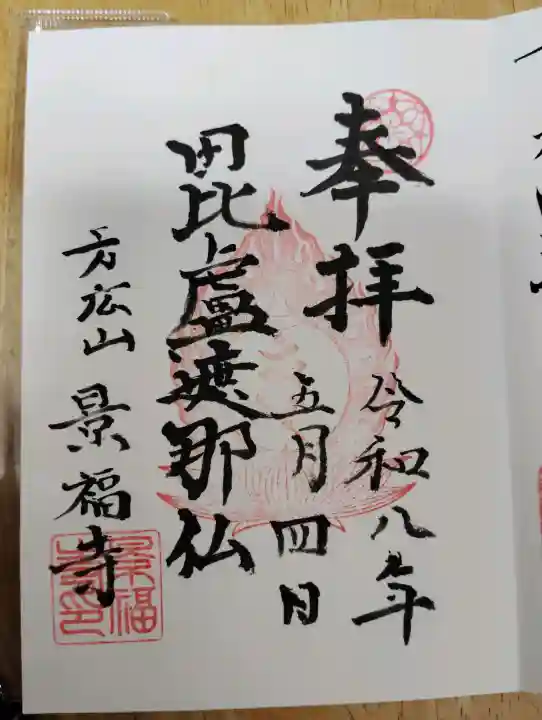 奉拝
令和八年
五月四日
毘盧遮那仏
方広山
景福寺
景福寺印